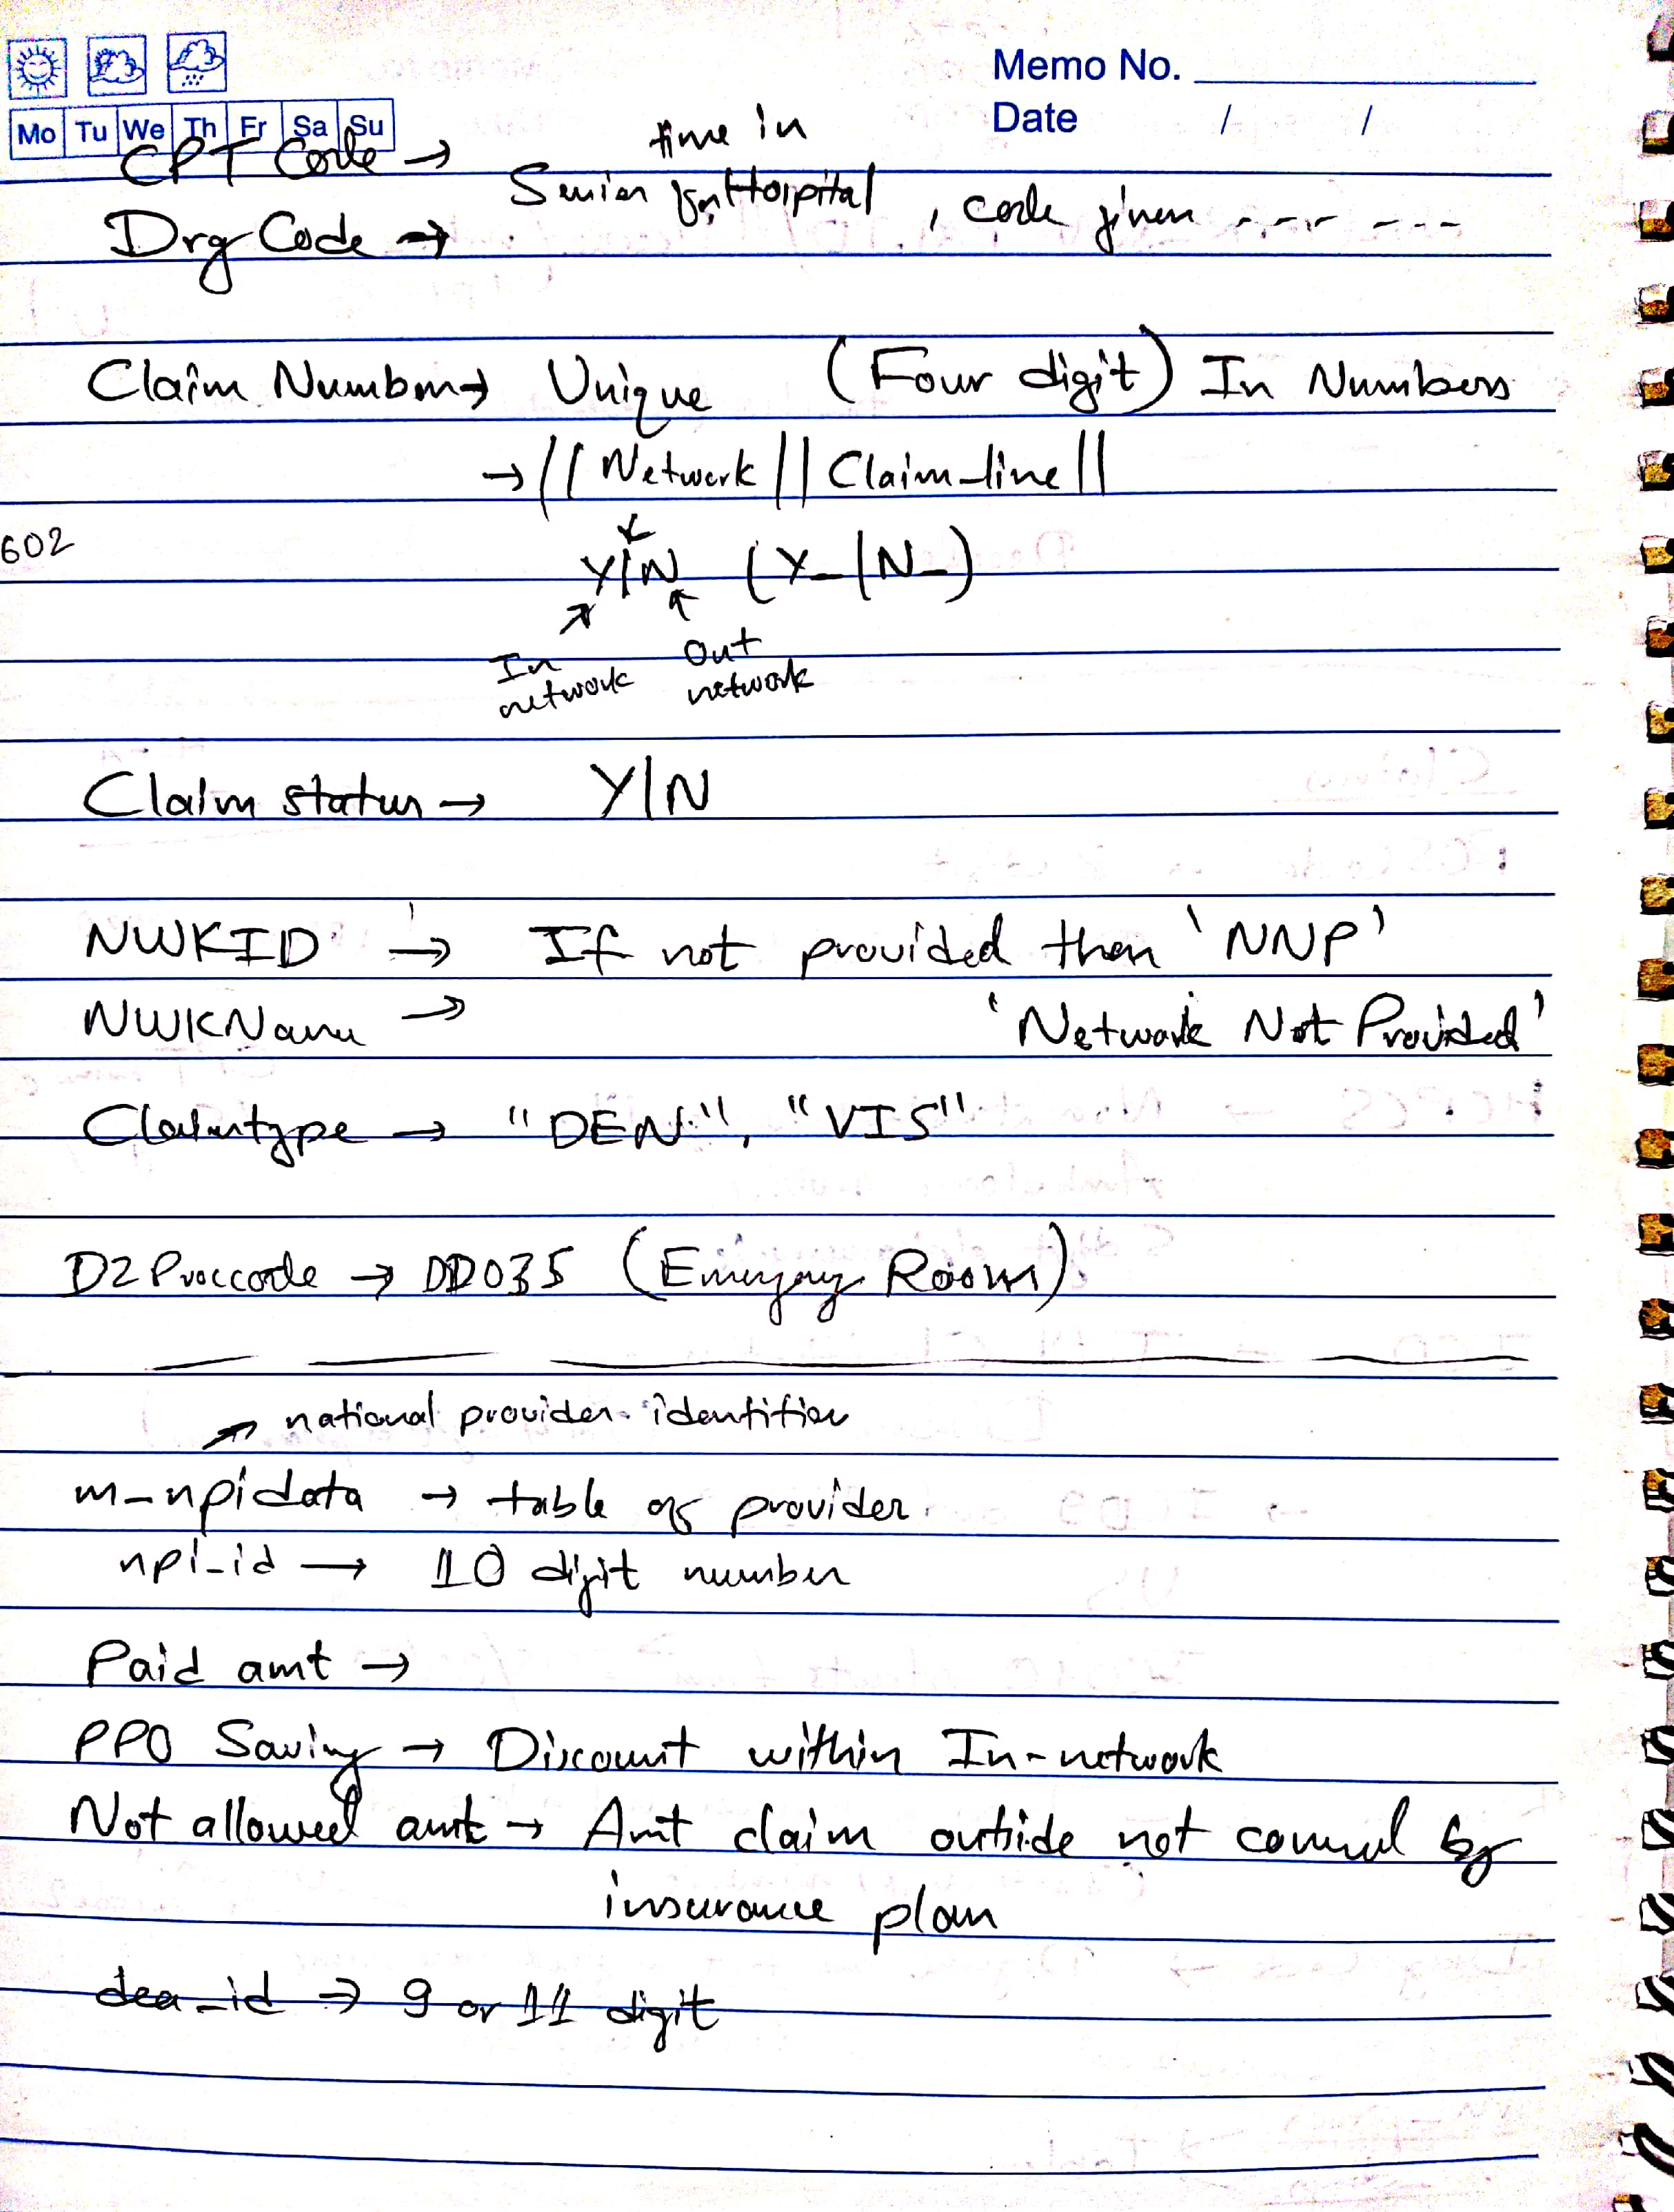 Memo No.
Mo Tu We Th Fr Sa Su
Date / /
CPT Code →
time in
Drg Code → Hospital, code given
Claim Number → Unique (Four digit) In Numbers
→ || Network || Claim_line ||
602
Y|N (Y_|N_)
In network
Out network
Claim status → Y|N
NWKID → If not provided then 'NNP'
NWKName → 'Network Not Provided'
Claimtype → "DEN", "VIS"
D2Proccode → DD035 (Emergency Room)
national provider identifier
m_npidata → table of provider
npi_id → 10 digit number
Paid amt →
PPO Saving → Discount within In-network
Not allowed amt → Amt claim outside not covered by
insurance plan
dea_id → 9 or 11 digit